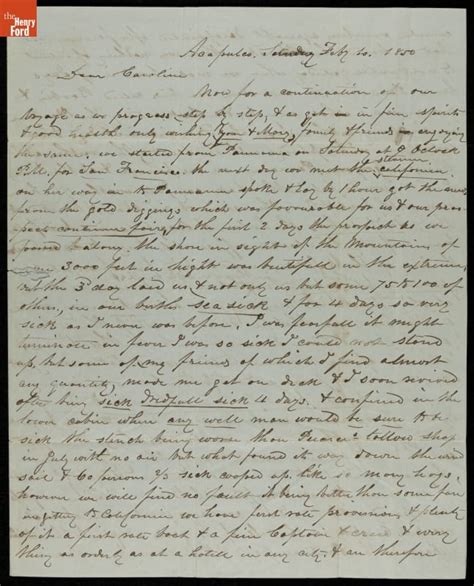 the
Henry
Ford
Acapulco, Saturday Feby 10. 1850
Dear Caroline
Now for a continuation of our
Voyage as we progress step by step, & as yet in fine spirits
& good health only wishing you & Mary, family & friends is enjoying
the same, we started from Pannama on Saturday at 8 Oclock
P.M. for San Francisco the next day we met the steamer California
on her way in to Pannama spoke & lay by 1 hour got the news
from the gold diggings which was favourable for us & our pros
pect continue fair, for the first 2 days the prospect as we
passed along the shore in sight of the Mountains of
some 3000 feet in hight was beautifull in the extreme,
but the 3d day laid us & not only us but some 75 to 100 of
others, in our births sea sick & for 4 days so very
sick as I never was before. I was fearfull it might
terminate in fever I was so sick I could not stand
up, but some of my friends of which I find almost
any quantity, made me get on deck & I soon revived
after being sick Dredfull sick 4 days. & confined in the
lower cabin where any well man would be sure to be
sick the stench being worse than tallow shop
in July with no air but what found its way down the wind
sail & 60 persons 2/3 sick cooped up, like so many hogs,
however we will find no fault it being better than some fare
in getting to California we have first rate provisions & plenty
of it a first rate boat & a fine Captain & crew & every
thing as orderly as at a hotell in any city, & am therefore